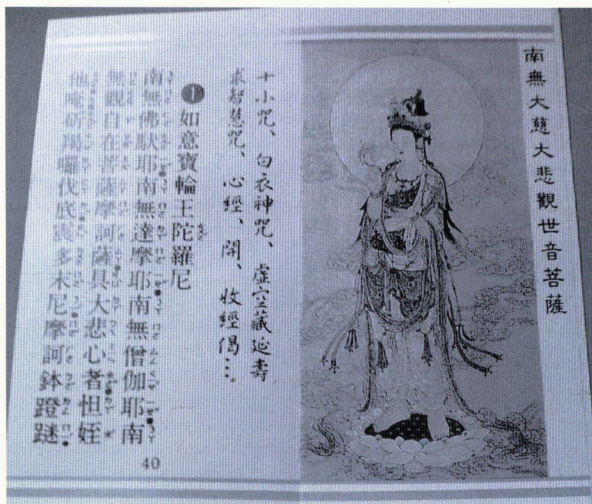 南無大慈大悲觀世音菩薩
十小咒、白衣神咒、虛空藏延壽
求智慧咒、心經、開、收經偈…。
❶如意寶輪王陀羅尼
南無佛馱耶南無達摩耶南無僧伽耶南
無觀自在菩薩摩訶薩具大悲心者怛姪
他唵斫羯囉伐底震多末尼摩訶鉢蹬謎
40